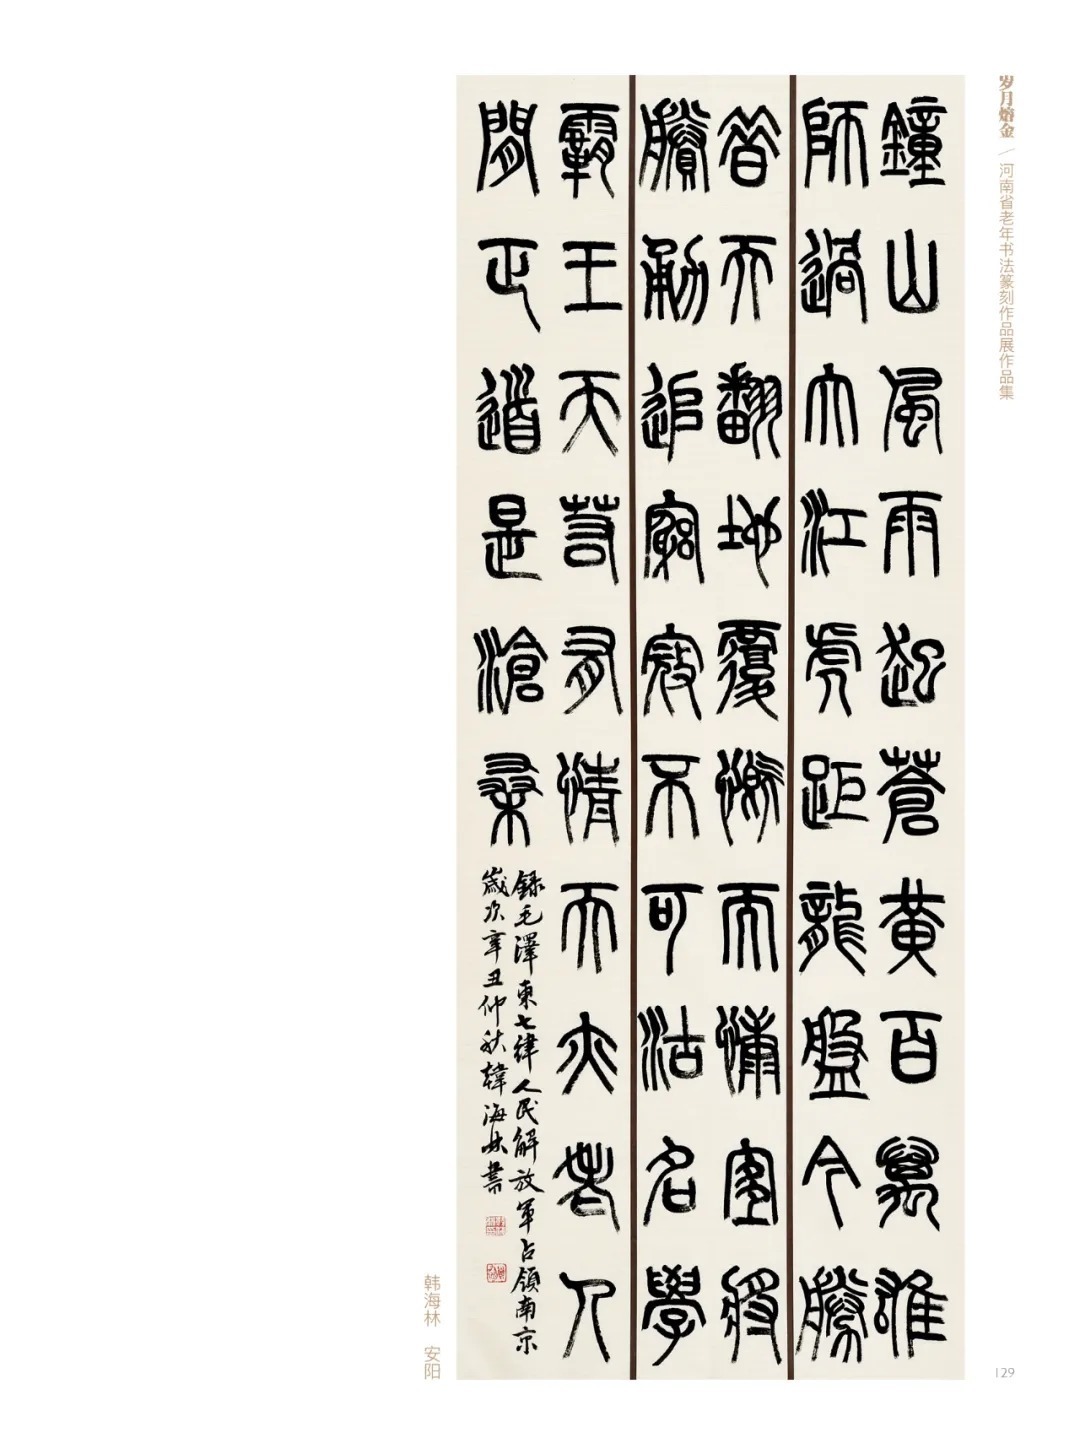 岁月熔金／河南省老年书法篆刻作品展作品集
鐘山風雨起蒼黃百萬雄
師過大江虎距龍盤今勝
昔天翻地覆慨而慷宜將
賸勇追窮寇不可沽名學
霸王天若有情天亦老人
間正道是滄桑
錄毛澤東七律人民解放軍占領南京
歲次辛丑仲秋韓海林書
韩海林 安阳
129